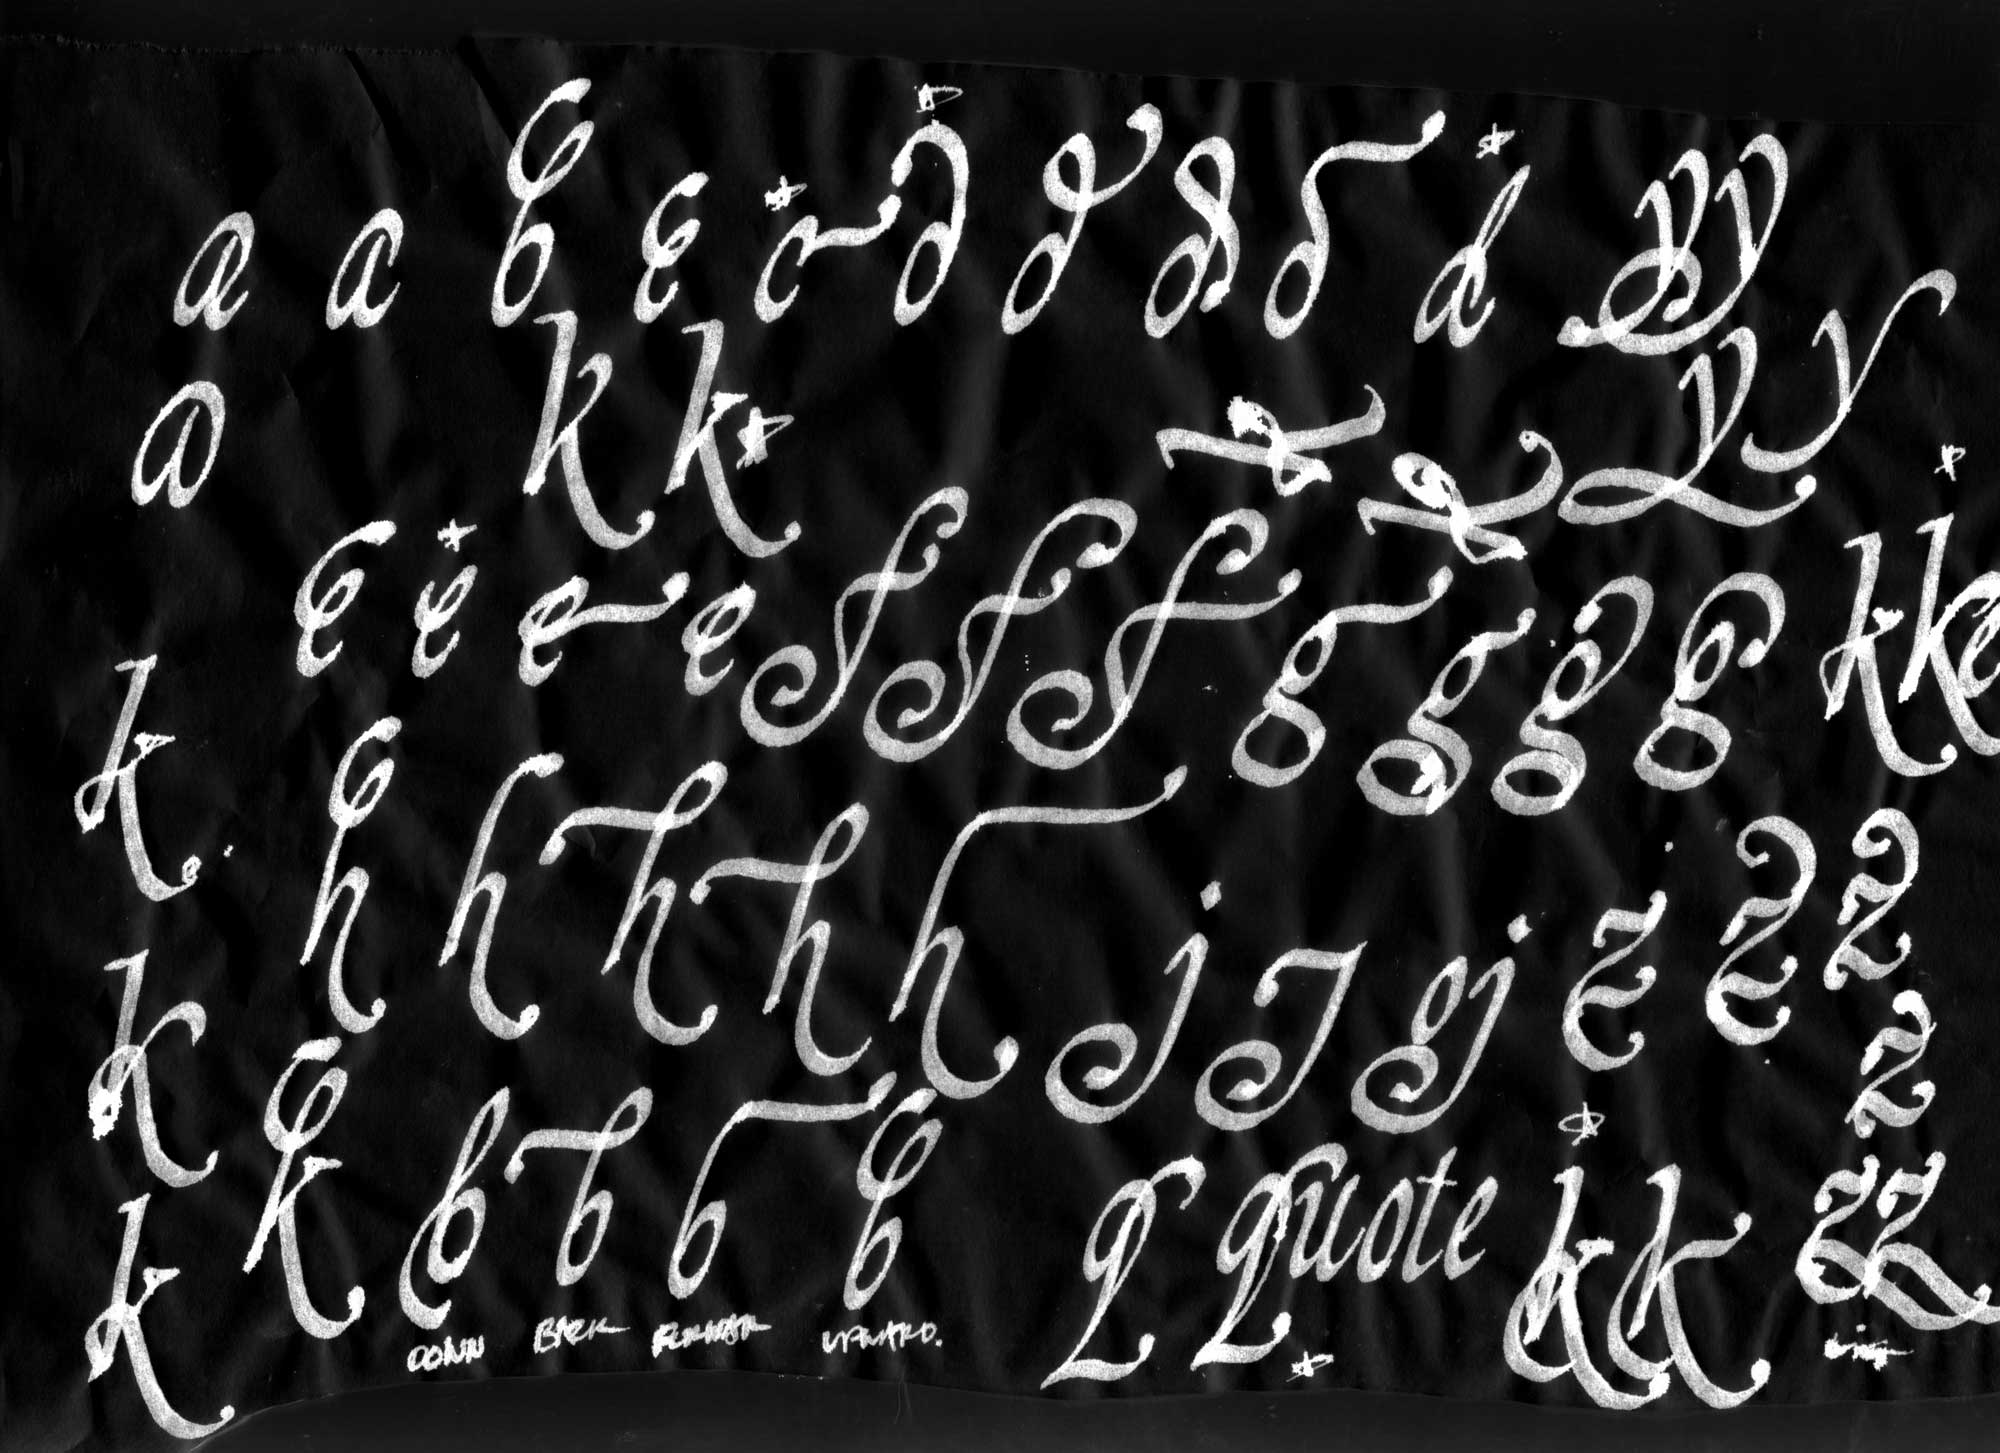 a a b c c d d d d d yy
a k k y y
k k
e e e e f f f g g g g k ke
k h h h h h j J gj z z z
k k b b b b q quote k k z z z
k
DOWN BACK FORWARD UPWARD.